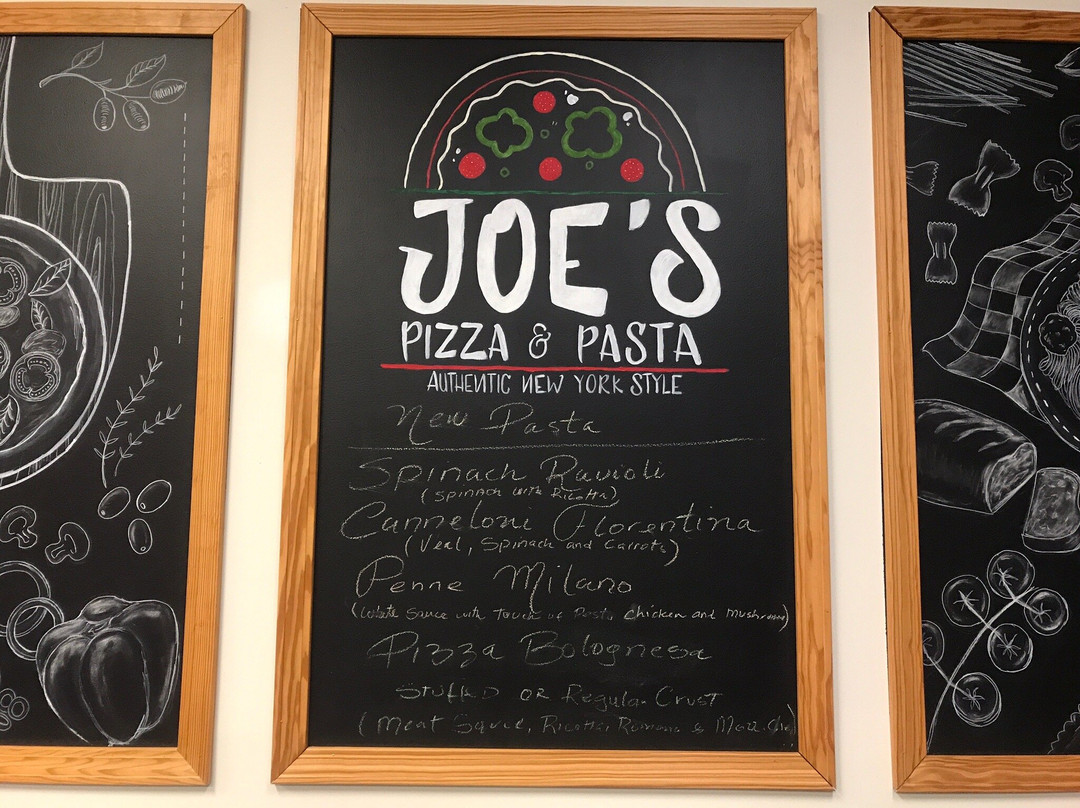 JOE'S
PIZZA & PASTA
AUTHENTIC NEW YORK STYLE
New Pasta
Spinach Ravioli
(Spinach with Ricotta)
Canneloni Florentina
(Veal, Spinach and Carrots)
Penne Milano
(White Sauce with Touch of Pesto Chicken and mushroom)
Pizza Bolognesa
Stuffed or Regular Crust
(Meat Sauce, Ricotta, Romano &